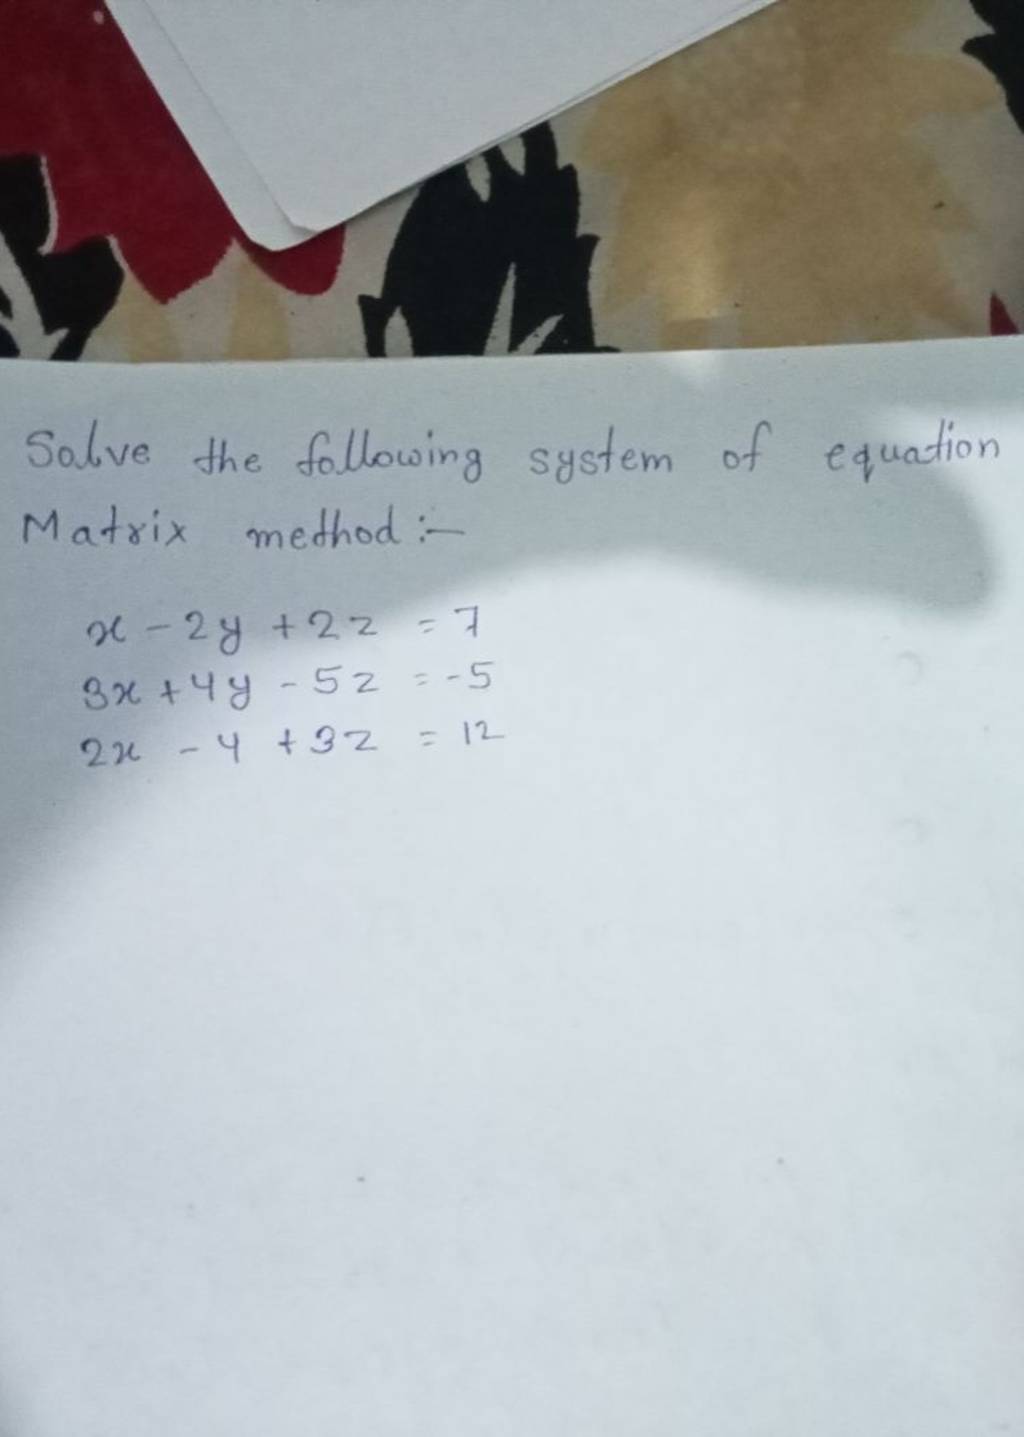 Solve the following system of equation
Matrix method :-
x - 2y + 2z = 7
3x + 4y - 5z = -5
2x - y + 3z = 12